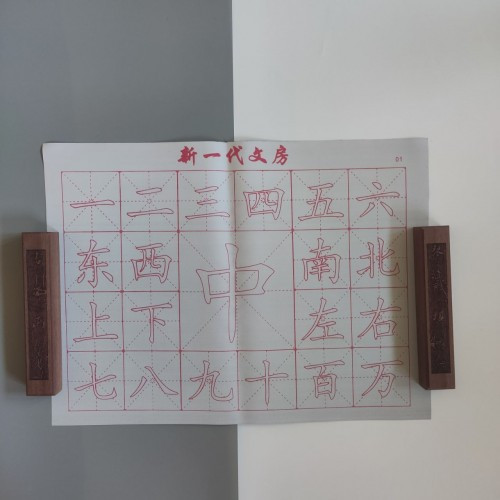 新一代文房
01
一二三四五六
东西中南北
上下左右
七八九十百万